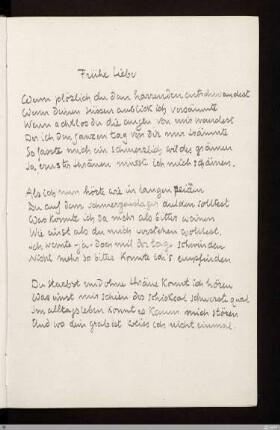 Frühe Liebe
Wenn plötzlich du dem harrenden entschwandest
Wenn deinen süssen anblick ich versäumte
Wenn achtlos du die augen von mir wandest
Der ich den ganzen tag von dir nur träumte
So fasste mich ein schmerzlich wildes grämen
Ja, ernster thränen musst ich mich schämen.
Als ich nun hörte wie in langen zeiten
Du auf dem schmerzenslager dulden solltest
Was konnte ich da mehr als bitter weinen
Wie einst als du mich verstehen wolltest.
Ich weinte – ja – doch mit der tage schwinden
Nicht mehr so bitter konnte ich's empfinden
Du starbst und ohne thräne konnt ich hören
Was einst mir schien des schicksal schwerste qual
Im alltagsleben konnt es kaum mich stören
Und wo dein grab ist weiss ich nicht einmal.